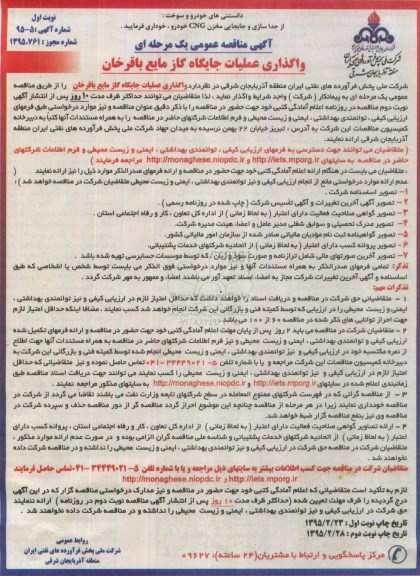 دانستنی های خودرو و سوخت :
از جدا سازی و جابجایی مخزن CNG خودرو ، خودداری فرمایید .
نوبت اول
شماره آگهی : ۵۱-۹۵
شماره مجوز ۱۳۹۵،۲۶۱۱
منطقه آذربایجان شرقی
آگهی مناقصه عمومی یک مرحله ای
واگذاری عملیات جایگاه گاز مایع باقرخان
شرکت ملی پخش فرآورده های نفتی ایران منطقه آذربایجان شرقی در نظر دارد واگذاری عملیات جایگاه گاز مایع باقرخان را از طریق مناقصه
عمومی یک مرحله ای به پیمانکار ( شرکت ) واجد شرایط واگذار نماید ، لذا متقاضیان می توانند حداکثر ظرف مدت ۱۰ روز پس از انتشار آگهی
نوبت دوم مناقصه در روزنامه اعلام آمادگی کتبی خود جهت حضور در مناقصه را با ذکر دقیق عنوان مناقصه و نیز موارد درخواستی طبق فرمهای
ارزیابی کیفی ، توانمندی بهداشتی ، ایمنی و زیست محیطی و فرم اطلاعات شرکتهای حاضر در مناقصه را به همراه مستندات آنها کتباً به دبیرخانه
کمیسیون مناقصات این شرکت به آدرس ، تبریز خیابان ۲۲ بهمن نرسیده به میدان جهاد شرکت ملی پخش فرآورده های نفتی ایران منطقه
آذربایجان شرقی ارائه نمایند.
( متقاضیان می توانند جهت دسترسی به فرمهای ارزیابی کیفی ، توانمندی بهداشتی ، ایمنی و زیست محیطی و فرم اطلاعات شرکتهای
حاضر در مناقصه به سایتهای http://iets.mporg.ir و http://monaghese.niopdc.ir مراجعه فرمایند )
، متقاضیان می بایست در هنگام ارائه اعلام آمادگی کتبی خود جهت حضور در مناقصه و ارائه فرمهای صدرالذکر موارد ذیل را نیز ارائه نمایند (
عدم ارائه موارد درخواستی مانع از انجام ارزیابی کیفی و نیز توانمندی بهداشتی ، ایمنی و زیست محیطی متقاضیان شرکت در مناقصه خواهد شد ) .
۱- تصویر اساسنامه شرکت .
۲- تصویر آگهی آخرین تغییرات و آگهی تأسیس شرکت ( چاپ شده در روزنامه رسمی ) .
۳- تصویر گواهی صلاحیت فعالیت دارای اعتبار ( به لحاظ زمانی ) از اداره کل تعاون ، کار و رفاه اجتماعی استان .
۴- تصویر مدرک تحصیلی و سوابق شغلی مدیر عامل و اعضا هیئت مدیره شرکت.
۵- تصویر گواهینامه ثبت نام مؤدیان مالیاتی صادر شده از سازمان امور مالیاتی کشور.
۶- تصویر پروانه کسب دارای اعتبار ( به لحاظ زمانی ) از اتحادیه شرکتهای خدمات پشتیبانی.
۷- تصویر آخرین صورتهای مالی شامل ترازنامه و صورت سود و زیان ، که توسط موسسات حسابرسی تهیه شده باشد .
تذکر: تمامی فرمهای صدرالذکر به همراه مستندات آنها و نیز موارد درخواستی فوق الذکر می بایست توسط شخص یا اشخاصی که طبق
اساسنامه و آگهی آخرین تغییرات شرکت مجاز به امضاء اسناد تعهد آور می باشند امضاء و ممهور به مهر شرکت گردد .
تذکرات مهم:
۱ - متقاضیانی حق شرکت در مناقصه و دریافت اسناد را خواهند داشت که حداقل امتیاز لازم در ارزیابی کیفی و نیز توانمندی بهداشتی ،
ایمنی و زیست محیطی را در ارزیابی که توسط کمیته فنی و بازرگانی این شرکت انجام خواهد شد کسب نمایند ، مضافا اینکه حداقل امتیاز لازم
جهت احراز توانایی های ذکر شده در مناقصه ۶۰ از ۱۰۰ می باشد .
۲ - متقاضیان شرکت در مناقصه می باید ۲ روز پس از پایان مهلت اعلام آمادگی کتبی خود جهت حضور در مناقصه و ارائه فرمهای تکمیل شده
ارزیابی کیفی و نیز توانمندی بهداشتی ، ایمنی و زیست محیطی و نیز فرم اطلاعات شرکتهای حاضر در مناقصه به همراه مستندات آنها جهت اطلاع
از نمره مکتسبه خود در ارزیابی کیفی و نیز توانمندی بهداشتی ، ایمنی و زیست محیطی انجام شده توسط کمیته فنی و بازرگانی این شرکت به
دبیرخانه کمیسیون مناقصات این شرکت مراجعه و یا با شماره تلفن ۵-۳۴۴۴۹۰۲۱-۰۴۱ تماس حاصل نموده و نیز متقاضیانی که حداقل
امتیاز لازم در ارزیابی کیفی و نیز توانمندی بهداشتی ، ایمنی و زیست محیطی را کسب می نمایند می توانند جهت دریافت اسناد مناقصه طبق
زمانبندی اعلام شده در سایتهای http://iets.mporg.ir و http://monaghese.niopdc.ir به سایتهای مذکور مراجعه نمایند .
۳ - از مناقصه گرانی که در فهرست شرکتهای ممنوع المعامله در سطح شرکتهای تابعه وزارت نفت می باشند تقاضا می گردد از شرکت در
مناقصه خودداری نمایند زیرا در هر مرحله از مناقصه چنانچه این موضوع احراز گردد مناقصه گر از دور مناقصه حذف و سپرده شرکت در
مناقصه وی نیز بنفع مناقصه گزار ضبط خواهد شد.
۴ - ارائه تصویر گواهی صلاحیت فعالیت دارای اعتبار ( به لحاظ زمانی ) از اداره کل تعاون ، کار و رفاه اجتماعی استان ، پروانه کسب دارای
اعتبار ( به لحاظ زمانی ) از اتحادیه شرکتهای خدمات پشتیبانی و شناسه ملی مناقصه گران الزامی بوده و در صورت عدم ارائه موارد مذکور ،
متقاضیان شرکت در مناقصه حق شرکت در ارزیابی کیفی و نیز توانمندی بهداشتی ، ایمنی و زیست محیطی را نداشته و در مناقصه شرکت داده
نخواهند شد .
متقاضیان شرکت در مناقصه جهت کسب اطلاعات بیشتر به سایتهای ذیل مراجعه و یا با شماره تلفن ۵-۳۴۴۴۹۰۲۱-۰۴۱ تماس حاصل فرمایند
http://iets.mporg.ir و http://monaghese.niopdc.ir
لازم به تأکید است متقاضیانی که اعلام آمادگی کتبی خود جهت حضور در مناقصه و نیز مدارک درخواستی مناقصه گزار که در این آگهی
درج گردیده را ظرف مهلت تعیین شده (حداکثر ظرف مدت ۱۰ روز پس از انتشار آگهی مناقصه نوبت دوم در روزنامه ) ارائه ننمایند
حق شرکت در ارزیابی کیفی و نیز توانمندی بهداشتی ، ایمنی و زیست محیطی را نداشته و در مناقصه شرکت داده نخواهند شد .
تاریخ چاپ نوبت اول : ۱۳۹۵/۲/۲۳
تاریخ چاپ نوبت دوم : ۱۳۹۵/۲/۲۸
روابط عمومی
شرکت ملی پخش فرآورده های نفتی ایران
منطقه آذربایجان شرقی
مرکز پاسخگویی و ارتباط با مشتریان(۲۴ ساعته): ۰۹۶۲۷